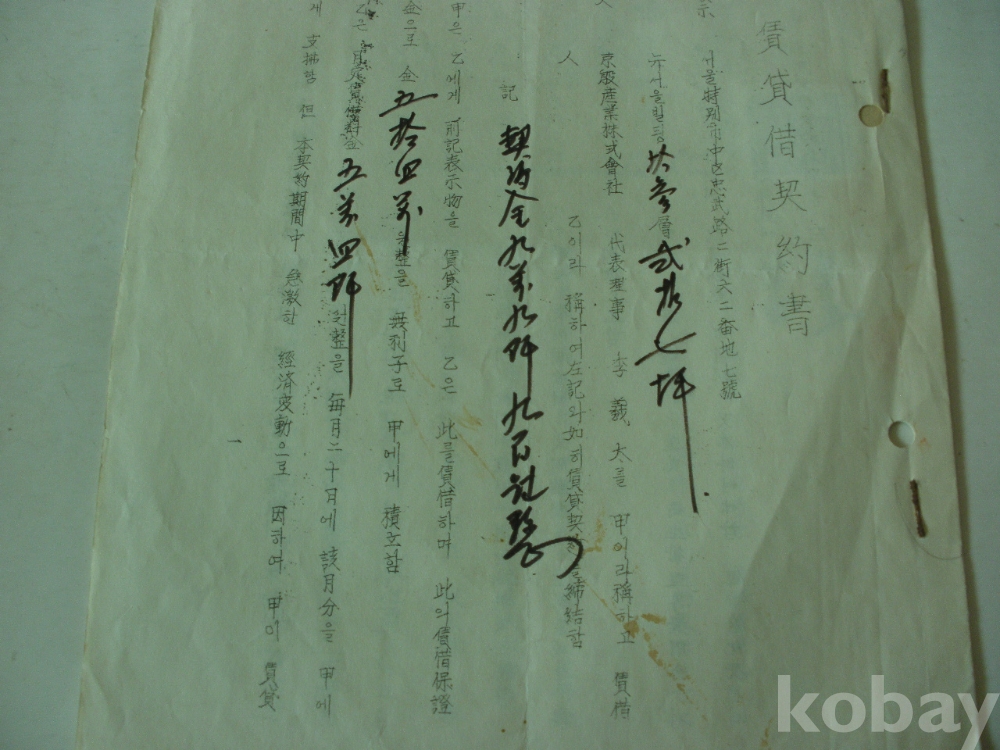 賃貸借契約書
示
서울特別市中区忠武路二街六二番地七號
뉴서울빌딩 拾參層 貳拾七坪
京殷産業株式會社 代表理事 李義太를 甲이라稱하고 賃借
人 乙이라 稱하여左記와如히賃貸契約을締結함
契約金九萬九阡九百원整
記
甲은 乙에게 前記表示物을 賃貸하고 乙은 此를賃借하며 此의賃借保證
金으로 金五拾四萬원整을 無利子로 甲에게 積立함
乙은 五萬四阡원整을 毎月二十日에 該月分을 甲에
게 支拂함 但 本契約期間中 急激한 經済変動으로 因하여 甲이 賃貸
一
kobay